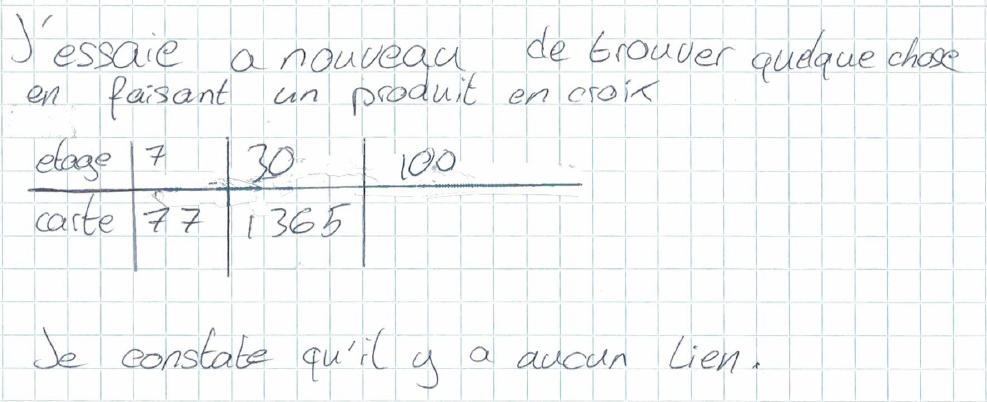 J'essaie a nouveau de trouver quelque chose
en faisant un produit en croix
etage 7 30 100
carte 77 1365
Je constate qu'il y a aucun lien.